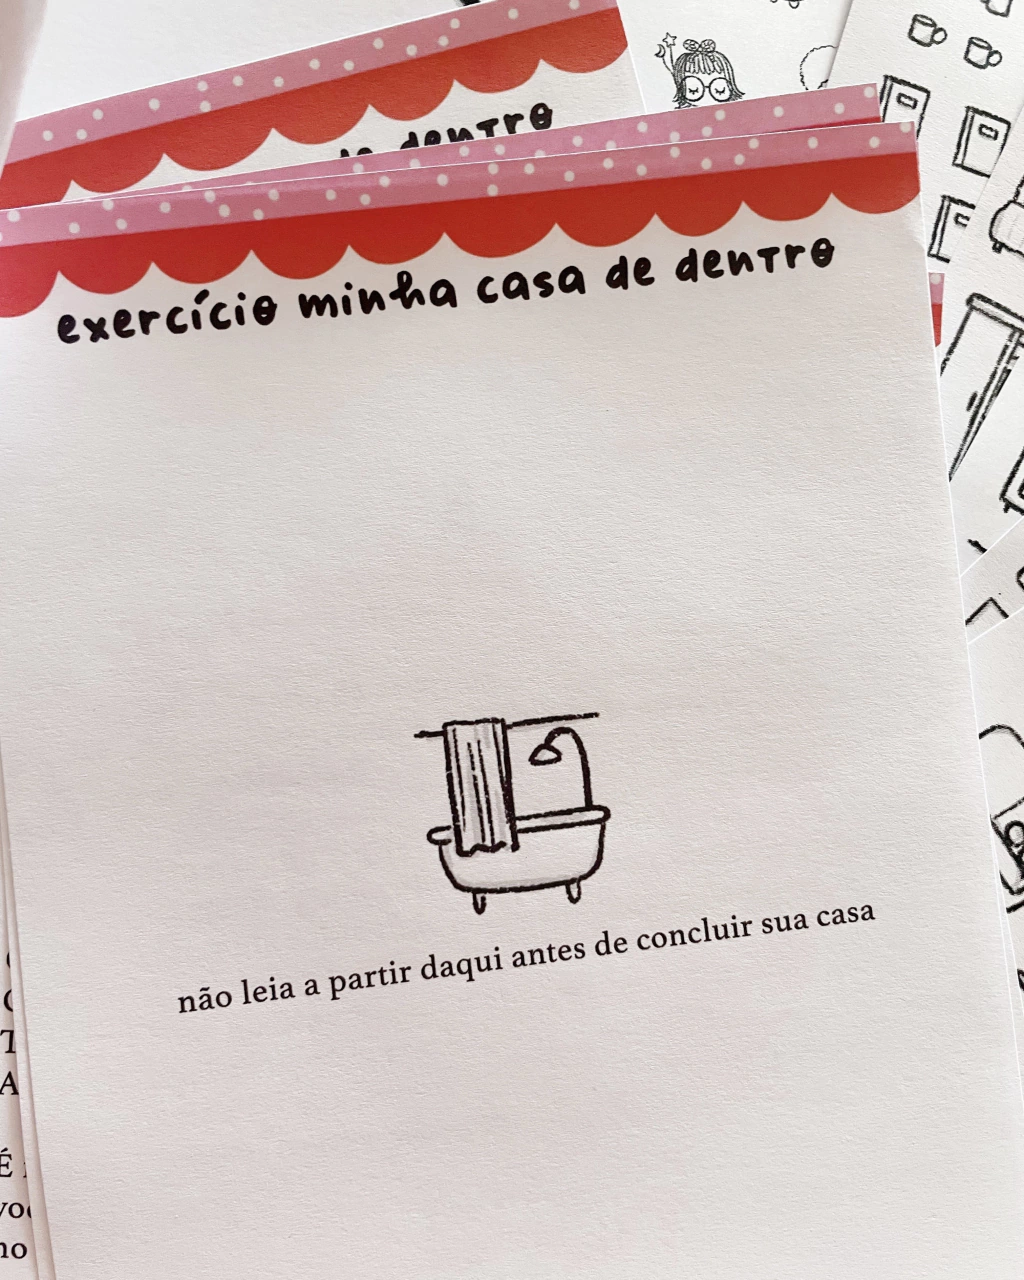 dentro
exercício minha casa de dentro
não leia a partir daqui antes de concluir sua casa
É